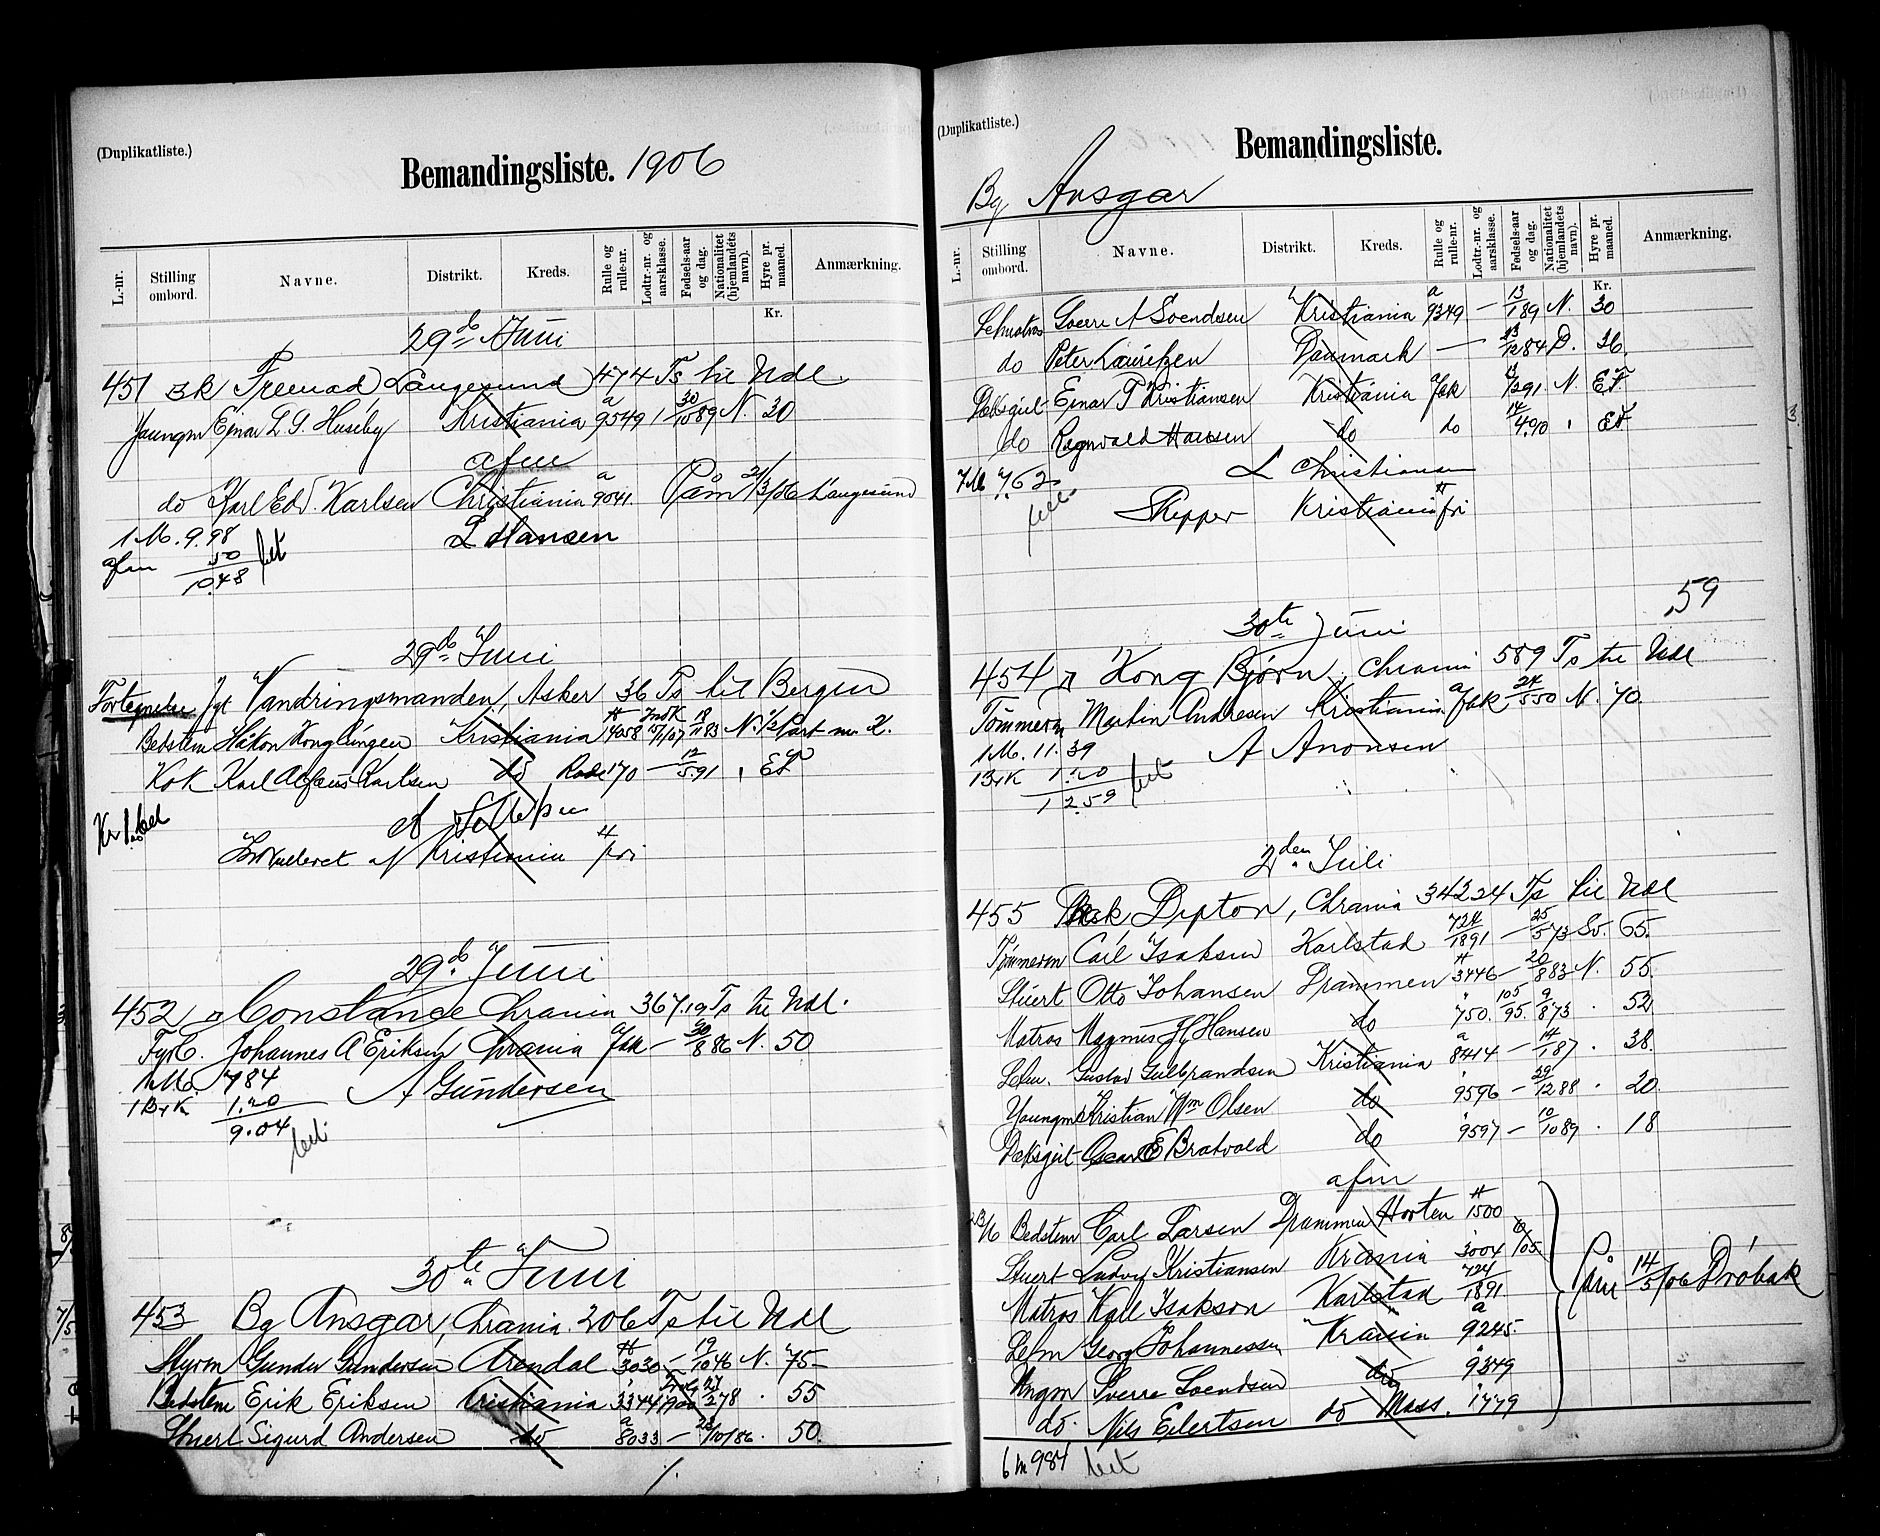 (Duplikatliste.)
Bemandingsliste. 1906
L.-nr. Stilling ombord. Navne. Distrikt. Kreds. Rulle og rulle-nr. Lodtr.-nr. og aarsklasse. Fødsels-aar og dag. Nationalitet (hjemlandets navn). Hyre pr. maaned. Anmærkning.
Kr.
29de Juni
451 Sk Fremad, Langesund 474 Ts til Udl.
Jaungm Ejnar L. G. Huseby Kristiania a 9549 1 30/10 89 N. 30
afm
do Karl Ed. Karlsen Christiania a 9041. Påm 21/3/06 Langesund
1 M. 9.98
afm 50 bet
10.48
L Hansen
29de Juni
Fortegnelse Jgt Vandringsmanden, Asker 36 Ts til Bergen
Bedstem Håkon Kongslungen Kristiania 4058 18/11 83 N. 1/2 part m. K.
Kok Karl Alfons Karlsen do Rode 170 — 12/5 91 EF
Kr 1. bet
Kristiania fri
29de Juni
452 Constance Chrania 367.19 Ts til Udl.
Fyrb. Johannes A Eriksen Chrania a/fak — 30/8 86 N. 50
1 M. 7.84 A Gundersen
1 BrK 1.20
9.04
bet.
30te Juni
453 Bg Ansgar, Chrania. 206 Ts til Udl
Styrm Gunder Gundersen Arendal 3030 — 19/10 46 N. 75 —
Bedstem Erik Eriksen Kristiania 3344 1900 27/2 78 . 55
Stuert Sigurd Andersen do a 8033 — 28/10/86 . 50.
(Duplikatliste.)
Bemandingsliste.
Bg Ansgar
L.-nr. Stilling ombord. Navne. Distrikt. Kreds. Rulle og rulle-nr. Lodtr.-nr. og aarsklasse. Fødsels-aar og dag. Nationalitet (hjemlandets navn). Hyre pr. maaned. Anmærkning.
Kr.
Letmatros Sverre A Svendsen Kristiania a 9349 — 13/1 89 N. 30
do Peter Lauritzen Danmark — 13/12 84 D. 36.
Dæksgut Ejnar T Kristiansen Kristiania a/fak 91 N. EF
do Ragnvald Hansen do do 14/4 90 EF
7 M 7.62 L Christiansen
bet
Skipper Kristiania fri
59
30te Juni
454 Kong Bjørn, Chrania 589 Ts til Udl
Tömmerm Martin Andresen Kristiania a/fak 24/5 50 N. 70.
1 M. 11.39 A Aronsen
1 BrK 1.20
12.59
bet
2den Juli
455 Bark Dipton, Chrania 34224 Ts til Udl
Tømmerm Carl Isaksen Karlstad 724/1891 — 25/5 73 Sv. 65.
Stuert Otto Johansen Drammen 3446 — 20/8 83 N. 55.
Matros Magnus H Hansen do 750. 105/95. 9/8 73 . 52
Letm. Gustav Gulbrandsen Kristiania a 8414 — 14/1 87 . 38.
Youngm Kristian Wm Olsen do 9596 — 29/12 88 . 20
Dæksgut Oscar E Bratvold do 9597 — 10/10 89 . 18
afm
Bedstem Carl Larsen Drammen Horten 1500
Stuert Ludvig Kristiansen Krania 3004
Matros Karl Isakson Karlstad 724/1891
Letm Georg Johannessen Krania a 9245.
Ungm Sverre Svendsen do 9349
do. Nils Eilertsen do Moss. 1779
Påm 14/5/06 Drøbak
6 m 984 bet